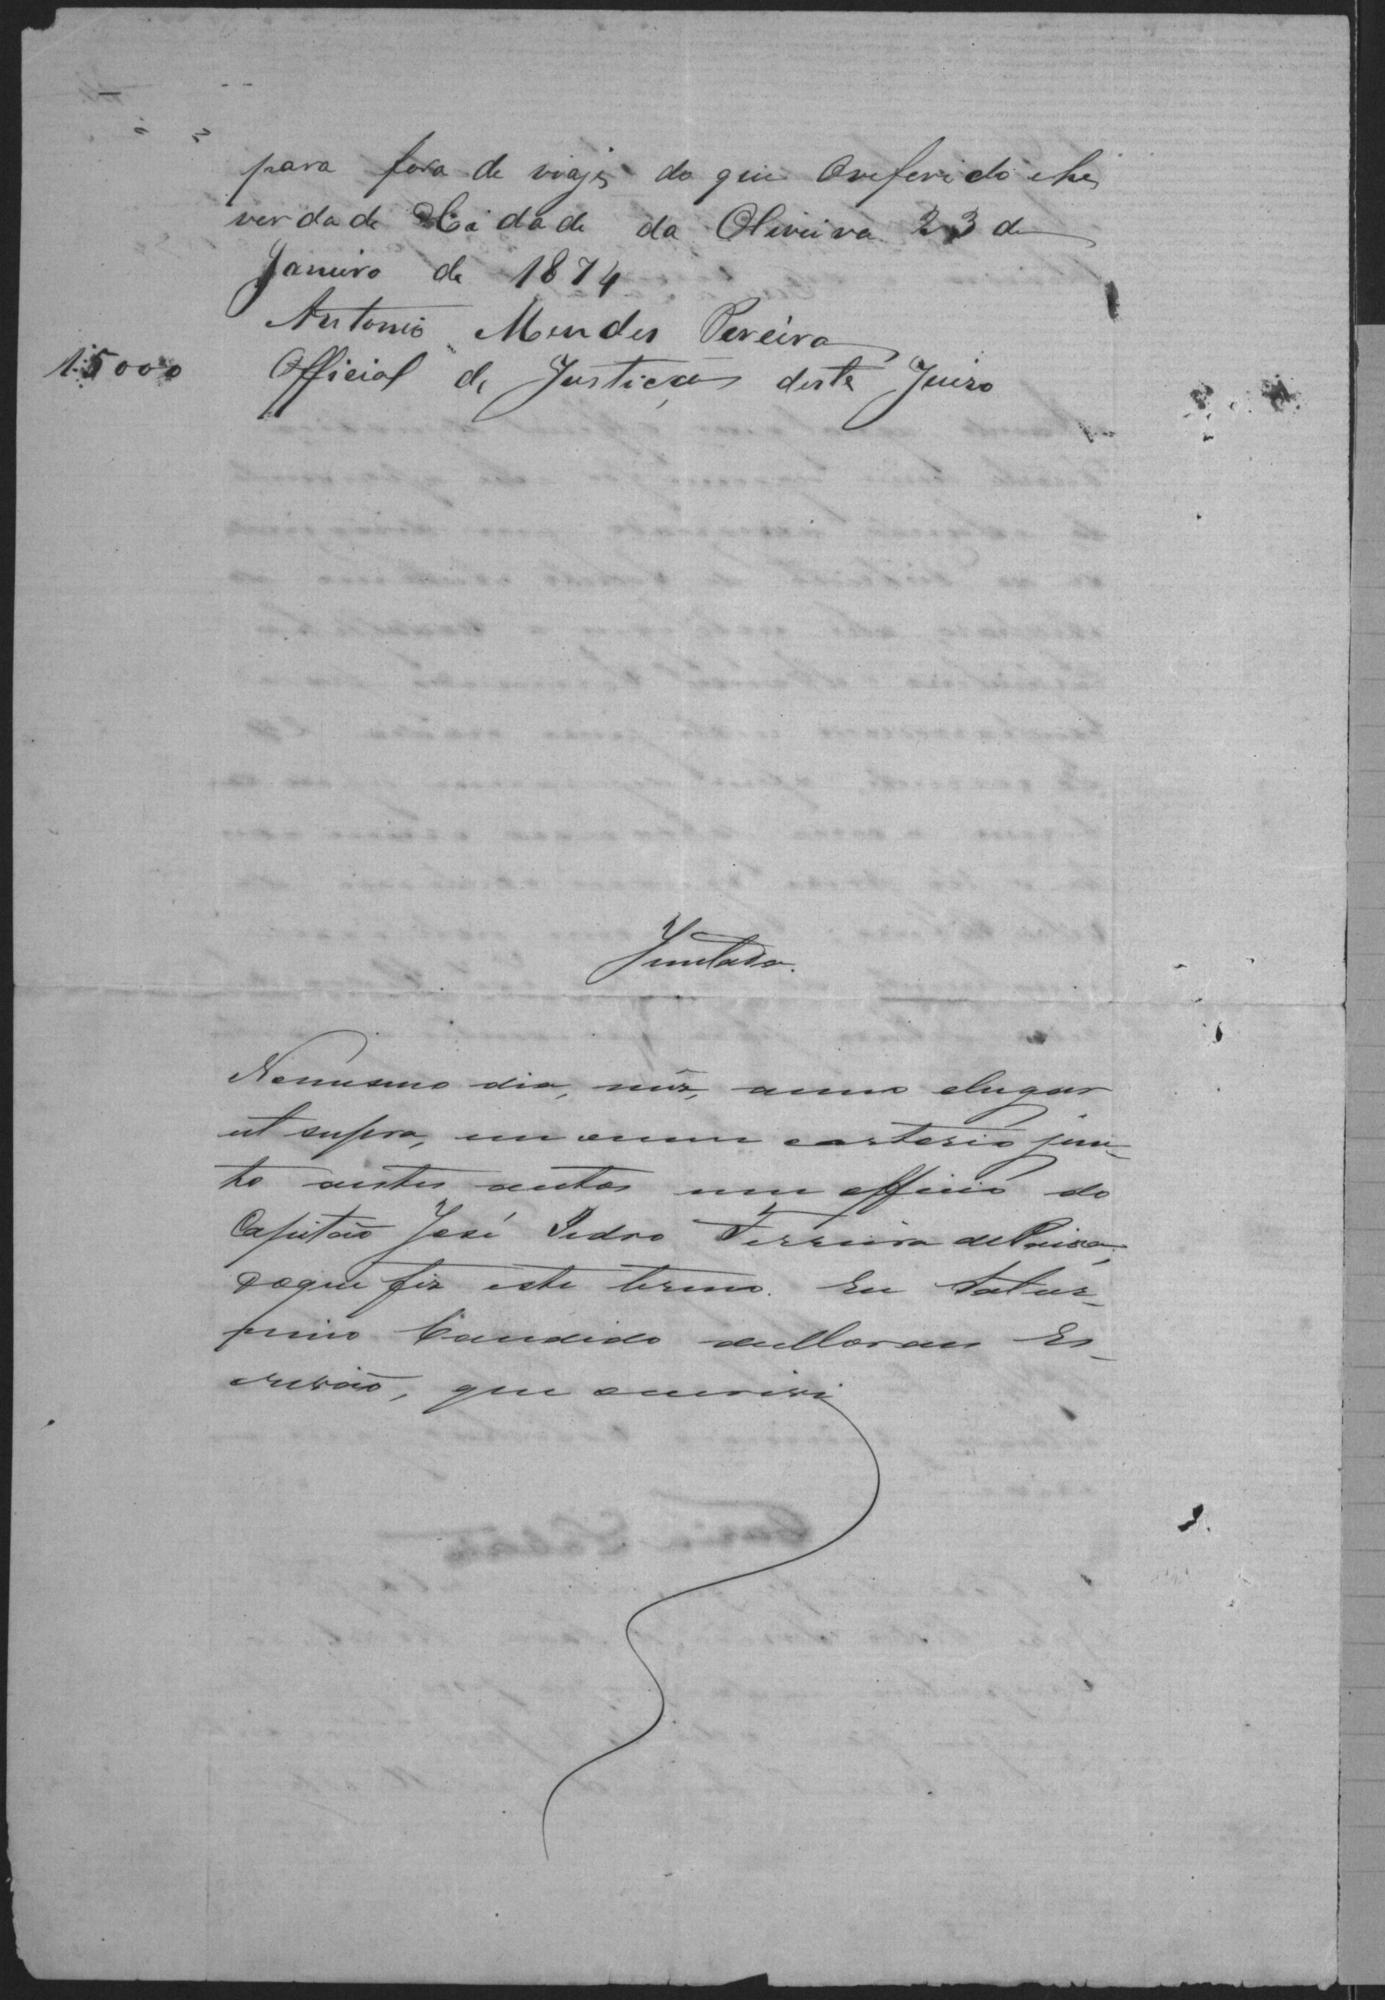 para fora de viaje do que Oreferido he
verdade Cidade da Oliveira 23 de
Janeiro de 1874
Antonio Mendes Pereira
15000 Official de Justiça deste Juizo
Juntada.
Nomesmo dia, mêz, anno elugar
ut supra, em omeu cartorio jun-
to aestes autos um officio do
Capitão José Pedro Ferreira de
Doque fiz este termo. Eu Satur-
nino Candido deMoraes Es-
crivão, que oescrivi